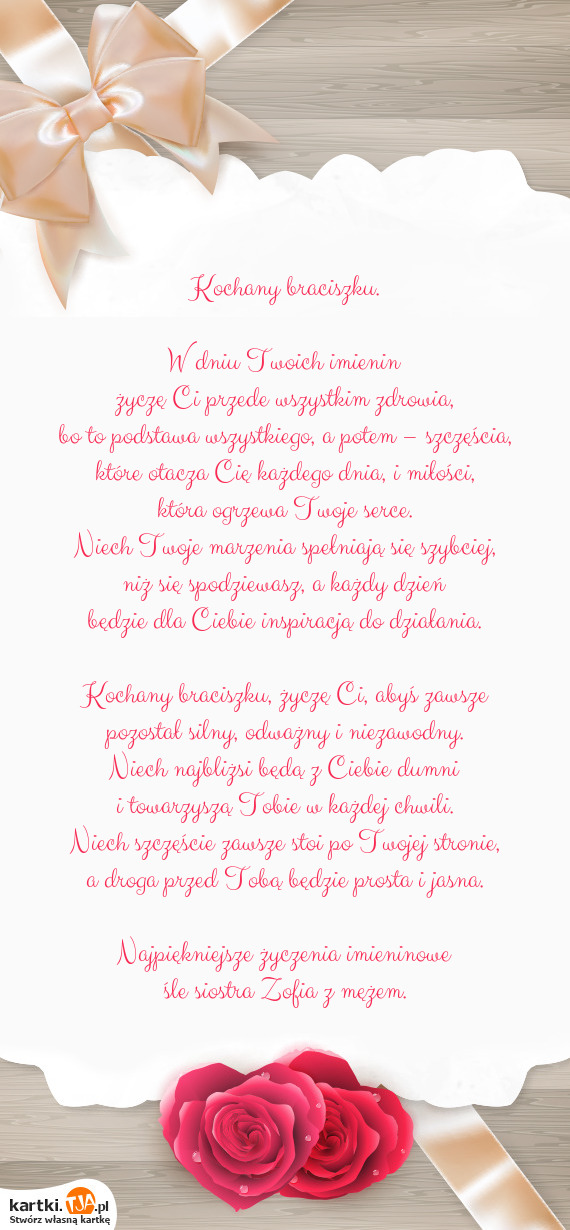 Kochany braciszku.
W dniu Twoich imienin
życzę Ci przede wszystkim zdrowia,
bo to podstawa wszystkiego, a potem – szczęścia,
które otacza Cię każdego dnia, i miłości,
która ogrzewa Twoje serce.
Niech Twoje marzenia spełniają się szybciej,
niż się spodziewasz, a każdy dzień
będzie dla Ciebie inspiracją do działania.
Kochany braciszku, życzę Ci, abyś zawsze
pozostał silny, odważny i niezawodny.
Niech najbliżsi będą z Ciebie dumni
i towarzyszą Tobie w każdej chwili.
Niech szczęście zawsze stoi po Twojej stronie,
a droga przed Tobą będzie prosta i jasna.
Najpiękniejsze życzenia imieninowe
śle siostra Zofia z mężem.
kartki.TJA.pl
Stwórz własną kartkę